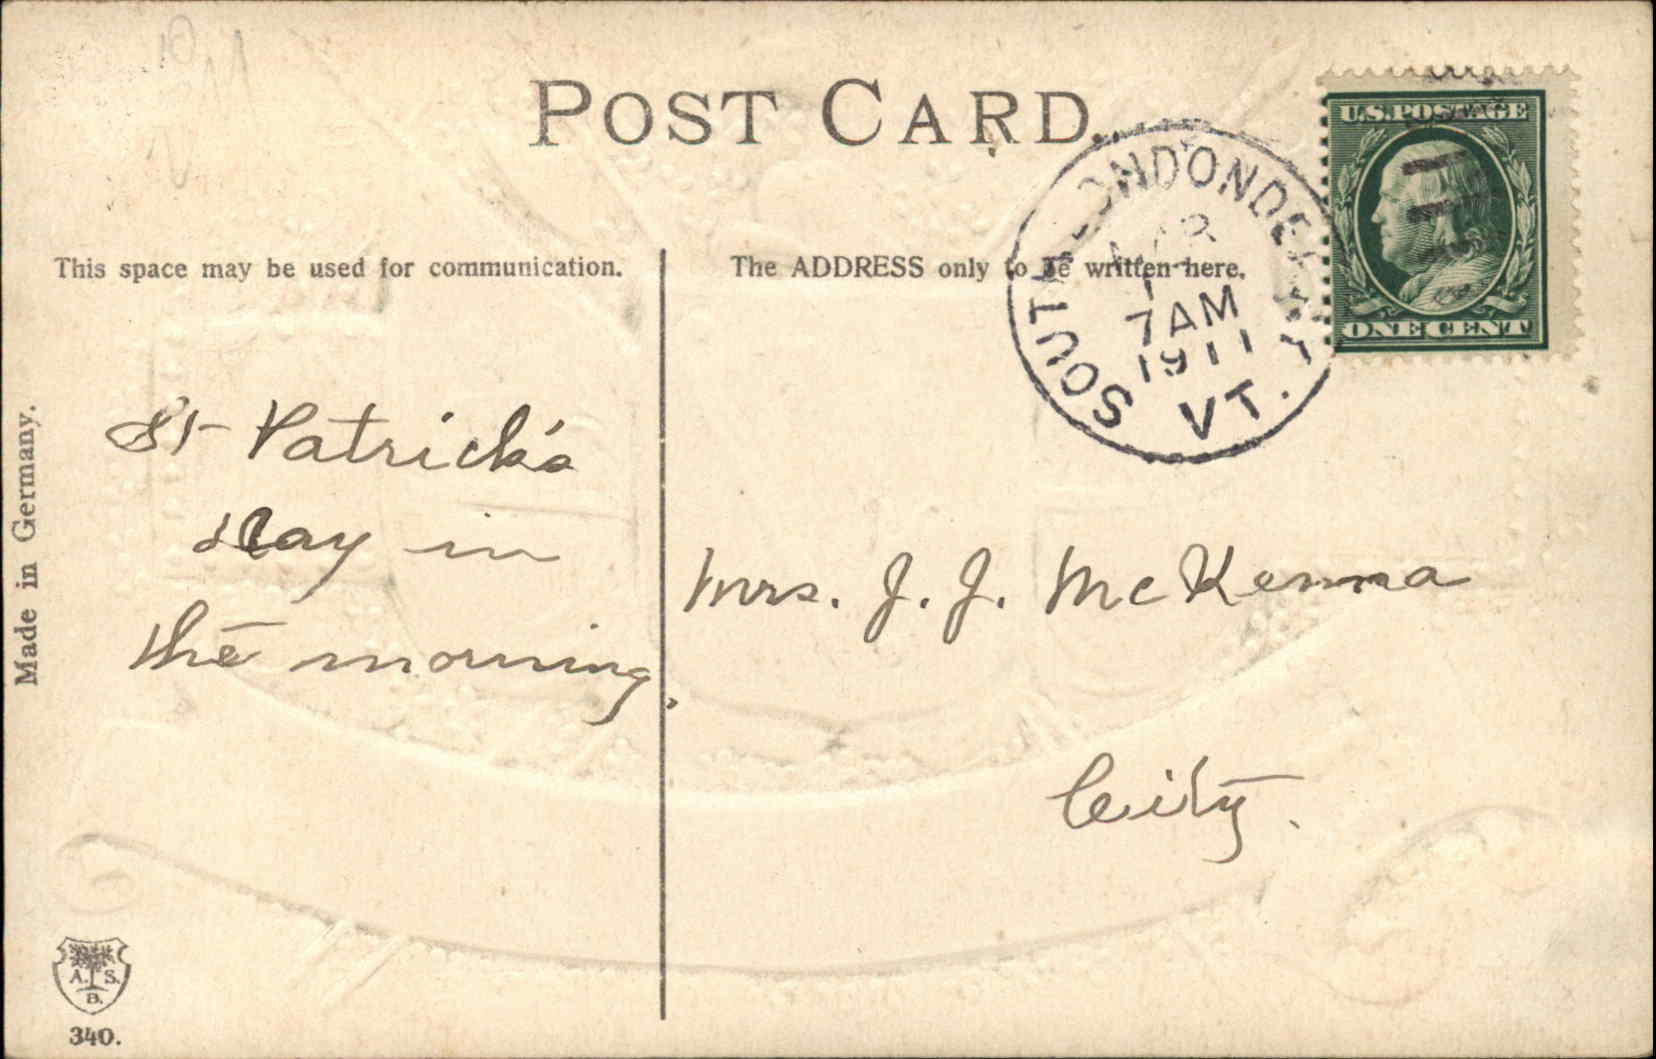 POST CARD.
U.S. POSTAGE
ONE CENT
SOUTH LONDONDERRY
VT.
7 AM
1911
This space may be used for communication.
The ADDRESS only to be written here.
St Patrick's
day in
the morning.
Mrs. J. J. McKenna
City.
Made in Germany.
A. S.
B.
340.